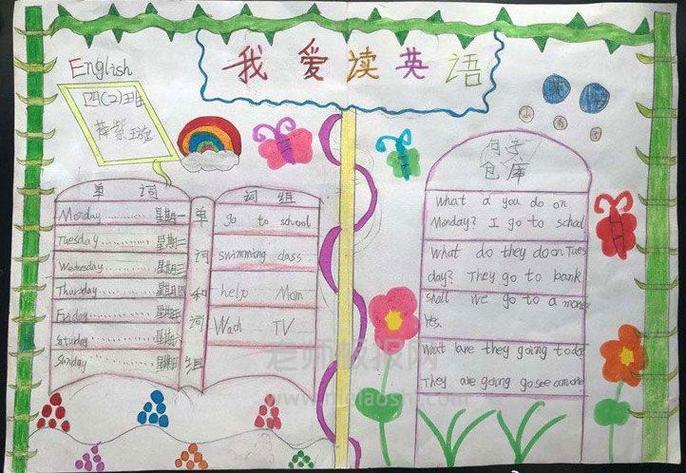 我爱读英语
English
四(2)班
单词
Monday............ 星期一
Tuesday............ 星期二
Wednesday......... 星期三
Thursday.......... 星期四
Friday............ 星期五
Saturday.......... 星期六
Sunday............ 星期日
单词和词组
词组
go to school
swimming class
help Mom
Wach TV
句子
仓库
What d you do on
Monday? I go to school
What do they do on Tues
day? They go to bank
Shall we go to a
Yes.
What are they going to do
They are going go see
老师板报网